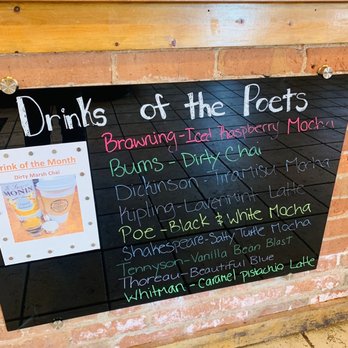 Drinks of the Poets
Drink of the Month
Dirty Marsh Chai
MONIN
Browning-Iced Raspberry Mocha
Burns-Dirty Chai
Dickinson-Tiramisu Mocha
Kipling-Lavermint Latte
Poe-Black & White Mocha
Shakespeare-Salty Turtle Mocha
Tennyson-Vanilla Bean Blast
Thoreau-Beautiful Blue
Whitman-Caramel Pistachio Latte